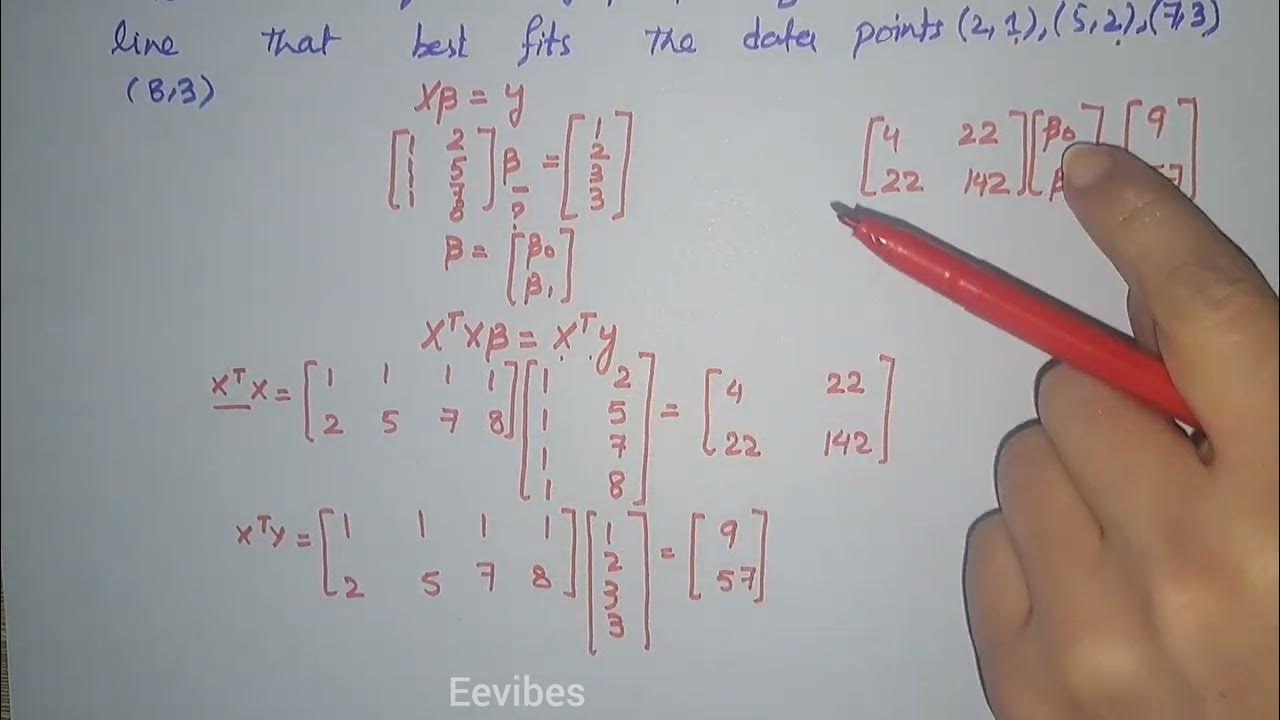 line that best fits the data points (2,1), (5,2), (7,3)
(8,3)
Xβ = y
[1 2
1 5
1 7
1 8] β = [1
2
3
3]
?
β = [β₀
β₁]
[4 22
22 142] [β₀
β [9
7]
XᵀXβ = Xᵀy
XᵀX = [1 1 1 1
2 5 7 8] [1 2
1 5
1 7
1 8] = [4 22
22 142]
Xᵀy = [1 1 1 1
2 5 7 8] [1
2
3
3] = [9
57]
Eevibes